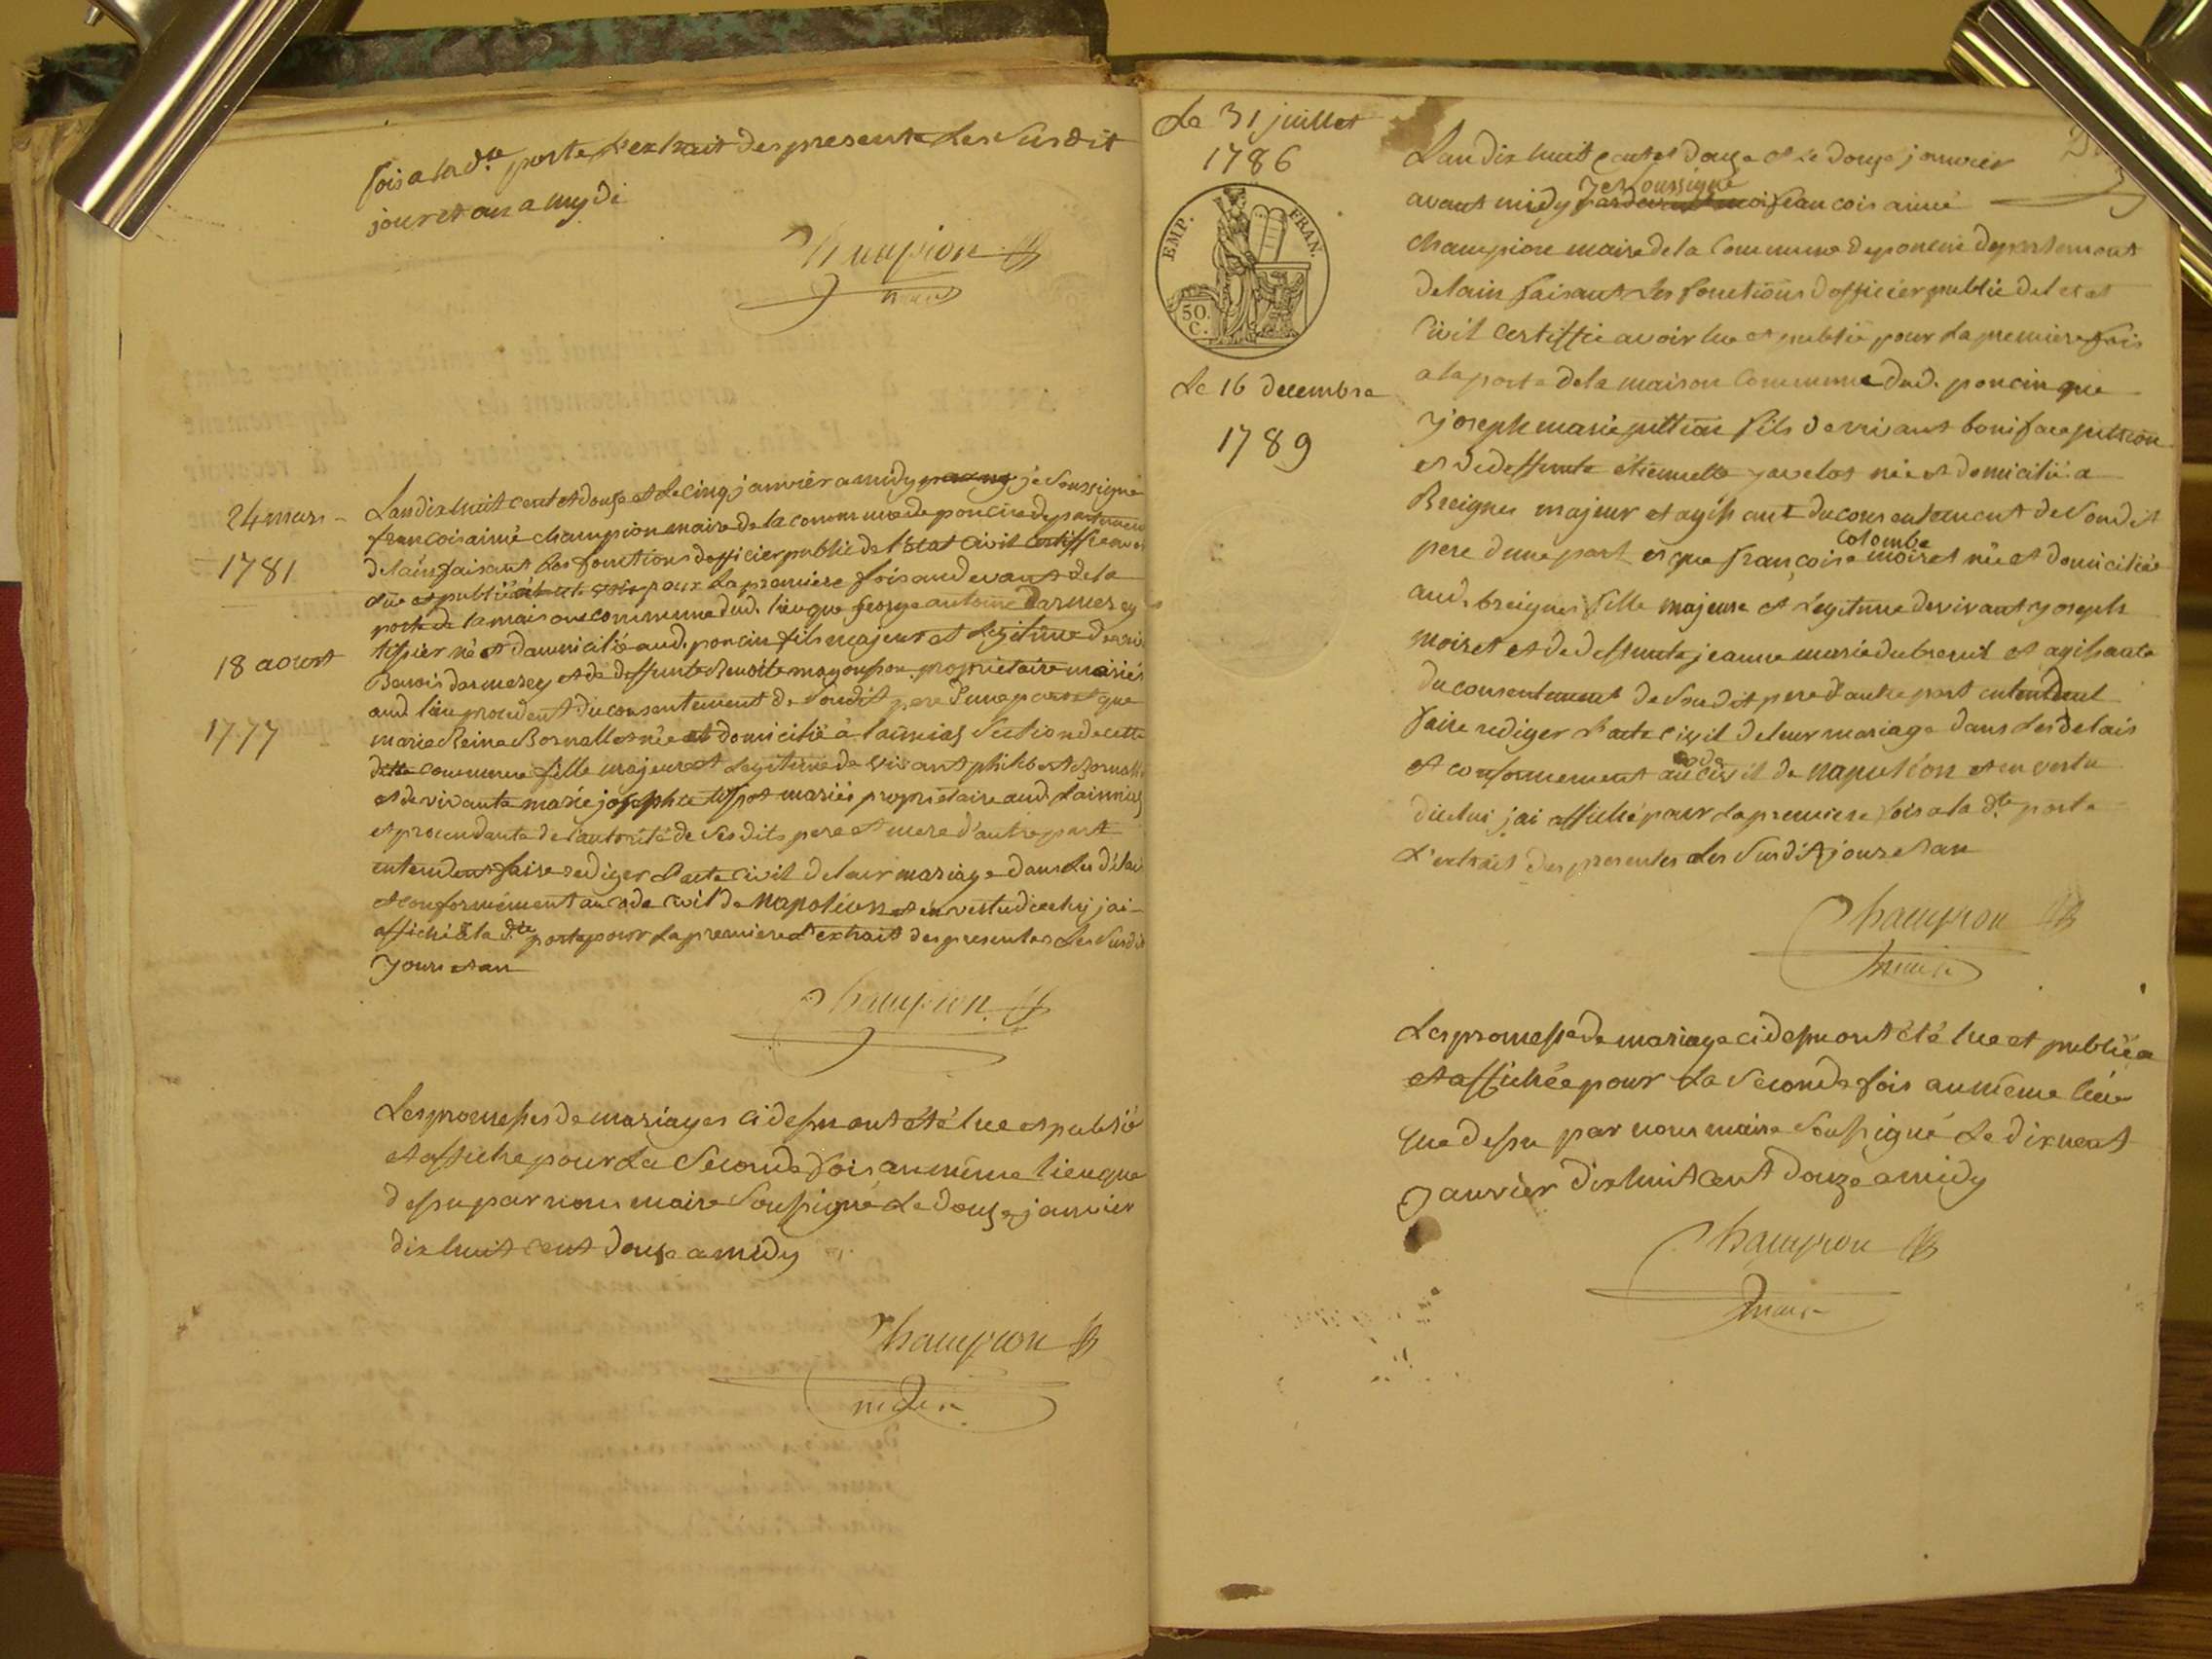 fois a lad.te porte l'extrait des presente les susdit
jour et an a mydi
Champion
24 mars
1781
18 aoust
1777
Lan dix huit cent et douze et le cinq janvier a midy je soussigné
francois aimé champion maire de la commune de poncin departement
de lain faisant les fonctions dofficier public de l'Etat Civil Certiffie avoir
lue et publié pour la premiere fois au devant de la
porte de la maison commune dud. lieu que george antoine Darmerey
tissier né et domicilié aud. poncin fils majeur et legitime de
Benois darmerey et de deffunte Benoite proprietaire mariés
aud. lieu procedent du consentement de Soudit pere d'une part et que
marie Reine Bornallet née et domicilié à laimiaz Section de cette
ditte commune fille majeure et legitime de vivant philibert
et de vivante marie josephte tissot mariés proprietaire aud. Laimiaz
et procendante de l'autorité de Sesdits pere et mere d'autre part
entendent faire rediger l'acte civil de leur mariage dans les délai
et conformément au code civil de Napoléon et en vertu dicelui j'ai
affiché à la d.te porte pour la premiere l'extrait des presentes les Susdit
Jours et an
Champion
Les promesses de mariages ci dessu ont été lue et publié
et affiche pour la Seconde fois au même lieu que
dessu par nous maire Soussigné le douze janvier
dix huit cent douze a midy
Champion
maire
Le 31 juillet
1786
EMP. FRAN.
50.
C.
Le 16 decembre
1789
Lan dix huit cent et douze et le douze janvier
Je soussigné
avant midy pardevant moi francois aimé
champion maire de la Commune de poncin departement
de lain faisant les fonctions dofficier public de l etat
Civil Certiffie avoir lue et publié pour la premiere fois
a la porte de la maison Commune dud. poncin que
joseph marie pittion fils de vivant boniface pittion
et de deffunte étiennette javelot né et domicilié a
Breignes majeur et agissant du consentement de Soudit
colombe
pere d'une part et que françoise moiret née et domiciliée
aud. breignes fille majeure et Legitime de vivant joseph
moiret et de deffunte jeanne marie dubreuil et agissante
du consentement de Soudit pere d'autre part entendent
faire rediger l'acte civil de leur mariage dans les delais
code
et conformement au civil de Napoléon et en vertu
dicelui j'ai affiché pour la premiere fois a la d.te porte
L'extrait des presentes les Susdit jour et an
Champion
maire
Les promesse de mariage ci dessu ont été lue et publiée
et affichée pour la Seconde fois au même lieu
que dessu par nous maire Soussigné le dix neuf
Janvier dix huit cent douze a midy
Champion
maire